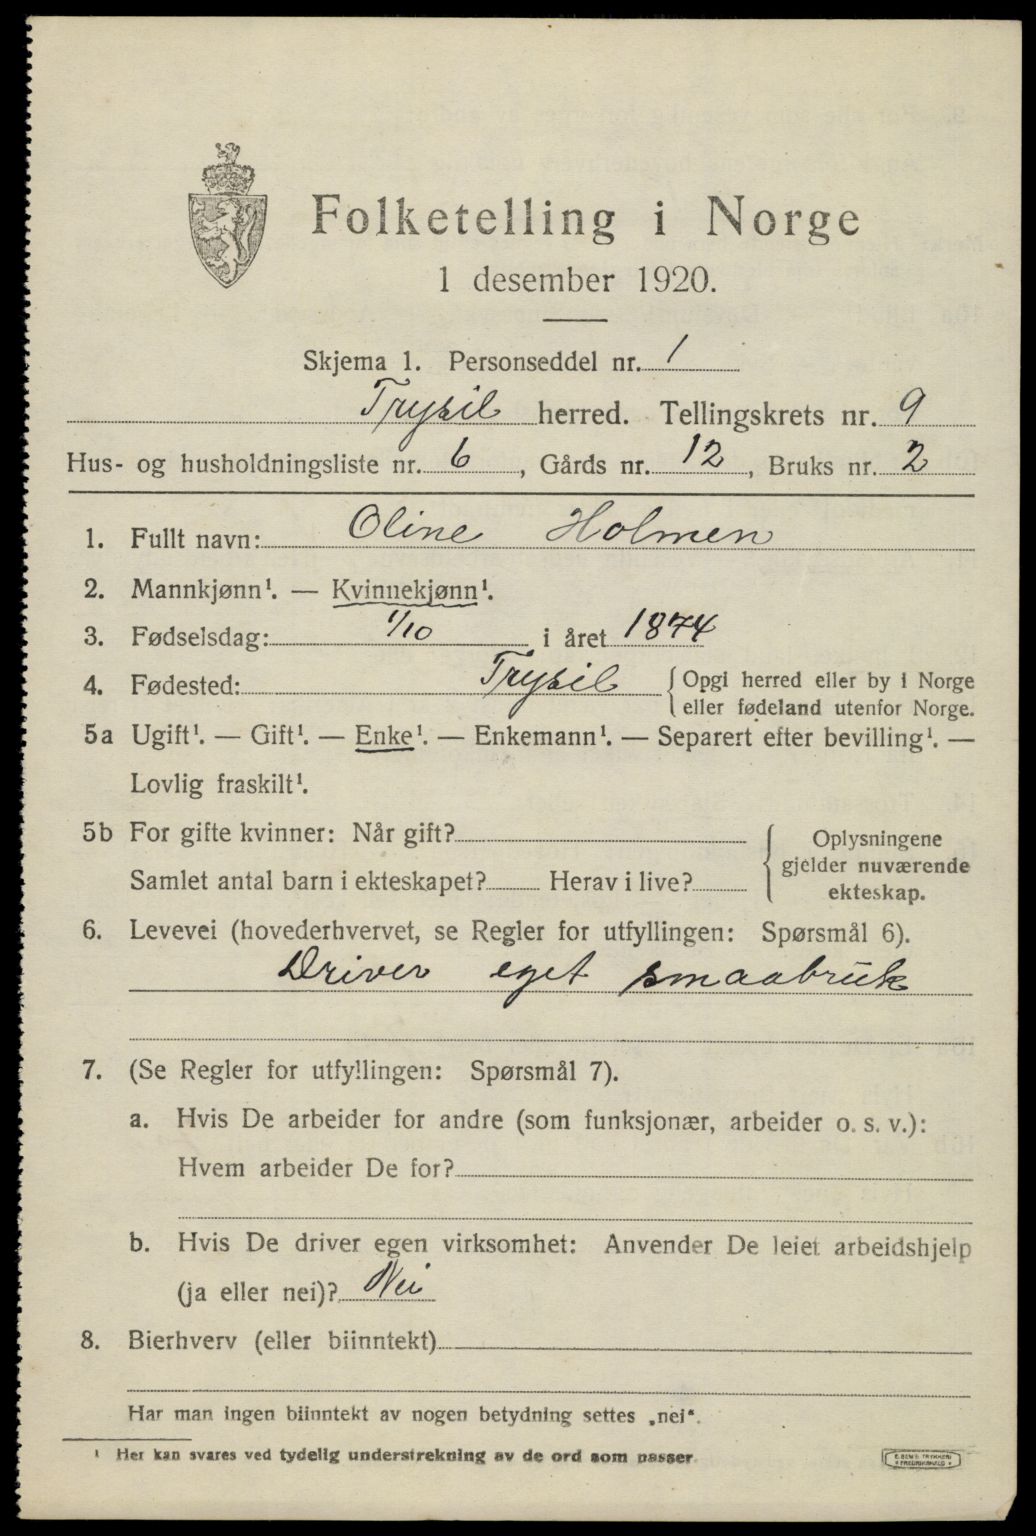 Folketelling i Norge
1 desember 1920.
Skjema 1. Personseddel nr. 1
Trysil herred. Tellingskrets nr. 9
Hus- og husholdningsliste nr. 6, Gårds nr. 12, Bruks nr. 2
1. Fullt navn: Oline Holmen
2. Mannkjønn¹. — Kvinnekjønn¹.
3. Fødselsdag: 1/10 i året 1874
4. Fødested: Trysil {Opgi herred eller by i Norge
eller fødeland utenfor Norge.
5a Ugift¹. — Gift¹. — Enke¹. — Enkemann¹. — Separert efter bevilling¹. —
Lovlig fraskilt¹.
5b For gifte kvinner: Når gift?
Samlet antal barn i ekteskapet? Herav i live?
Oplysningene
gjelder nuværende
ekteskap.
6. Levevei (hovederhvervet, se Regler for utfyllingen: Spørsmål 6).
Driver eget smaabruk
7. (Se Regler for utfyllingen: Spørsmål 7).
a. Hvis De arbeider for andre (som funksjonær, arbeider o. s. v.):
Hvem arbeider De for?
b. Hvis De driver egen virksomhet: Anvender De leiet arbeidshjelp
(ja eller nei)? Nei
8. Bierhverv (eller biinntekt)
Har man ingen biinntekt av nogen betydning settes „nei".
¹ Her kan svares ved tydelig understrekning av de ord som passer.